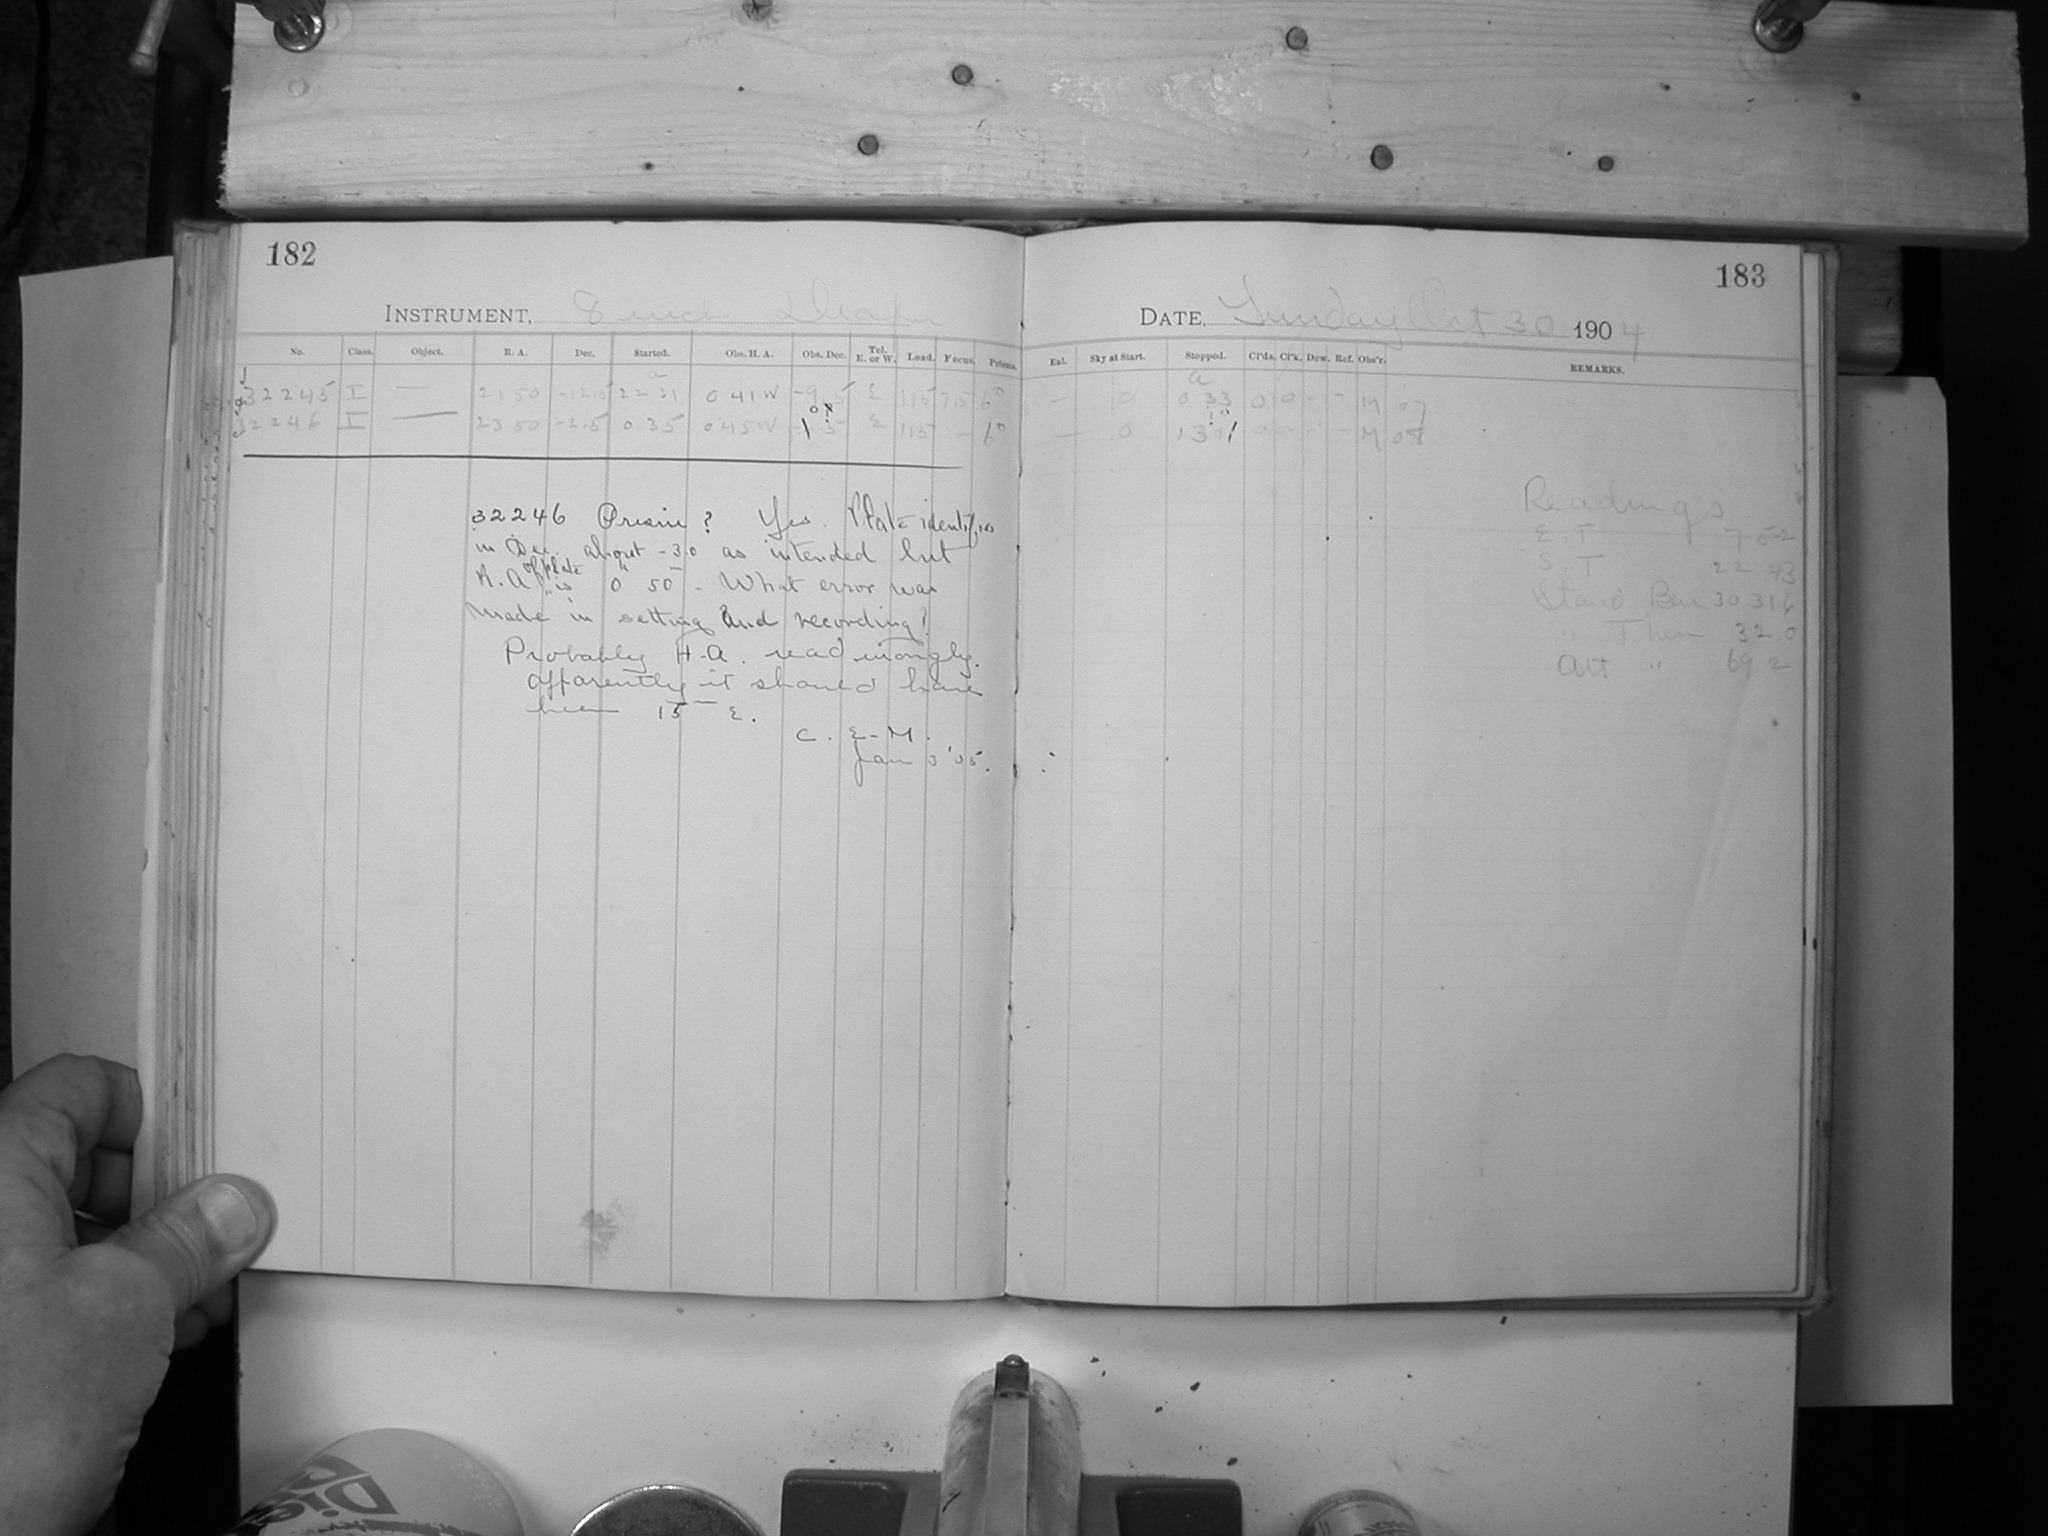 182
183
INSTRUMENT, 8 inch Draper
DATE, Sunday Oct 30 1904
No. Class. Object. R. A. Dec. Started. Obs. H. A. Obs. Dec. Tel. E. or W. Load. Focus. Prisms.
Ext. Sky at Start. Stopped. Cl'ds. Cl'k. Dew. Ref. Obs'r. REMARKS.
a
a
32245 I — 21 50 -12.5 22 31 0 41 W -9.5 E 115 7.5 6°
— 0 0 33 0 0 - - M 07
32246 I — 23 50 -2.5 0 35 0 45 W E 115 — 6°
— 0 M 08
32246 Prism? Yes. Plate identifies
in Dec. about -3.0 as intended but
R.A. of plate is 0 50 - What error was
made in setting and recording?
Probably H.A. read wrongly.
Apparently it should have
been 15 E.
C. E-M.
Jan 3 '05.
Readings
E.T 7 52
S.T 22 43
Stand Bar 30.316
" Ther 32.0
Att " 69.2